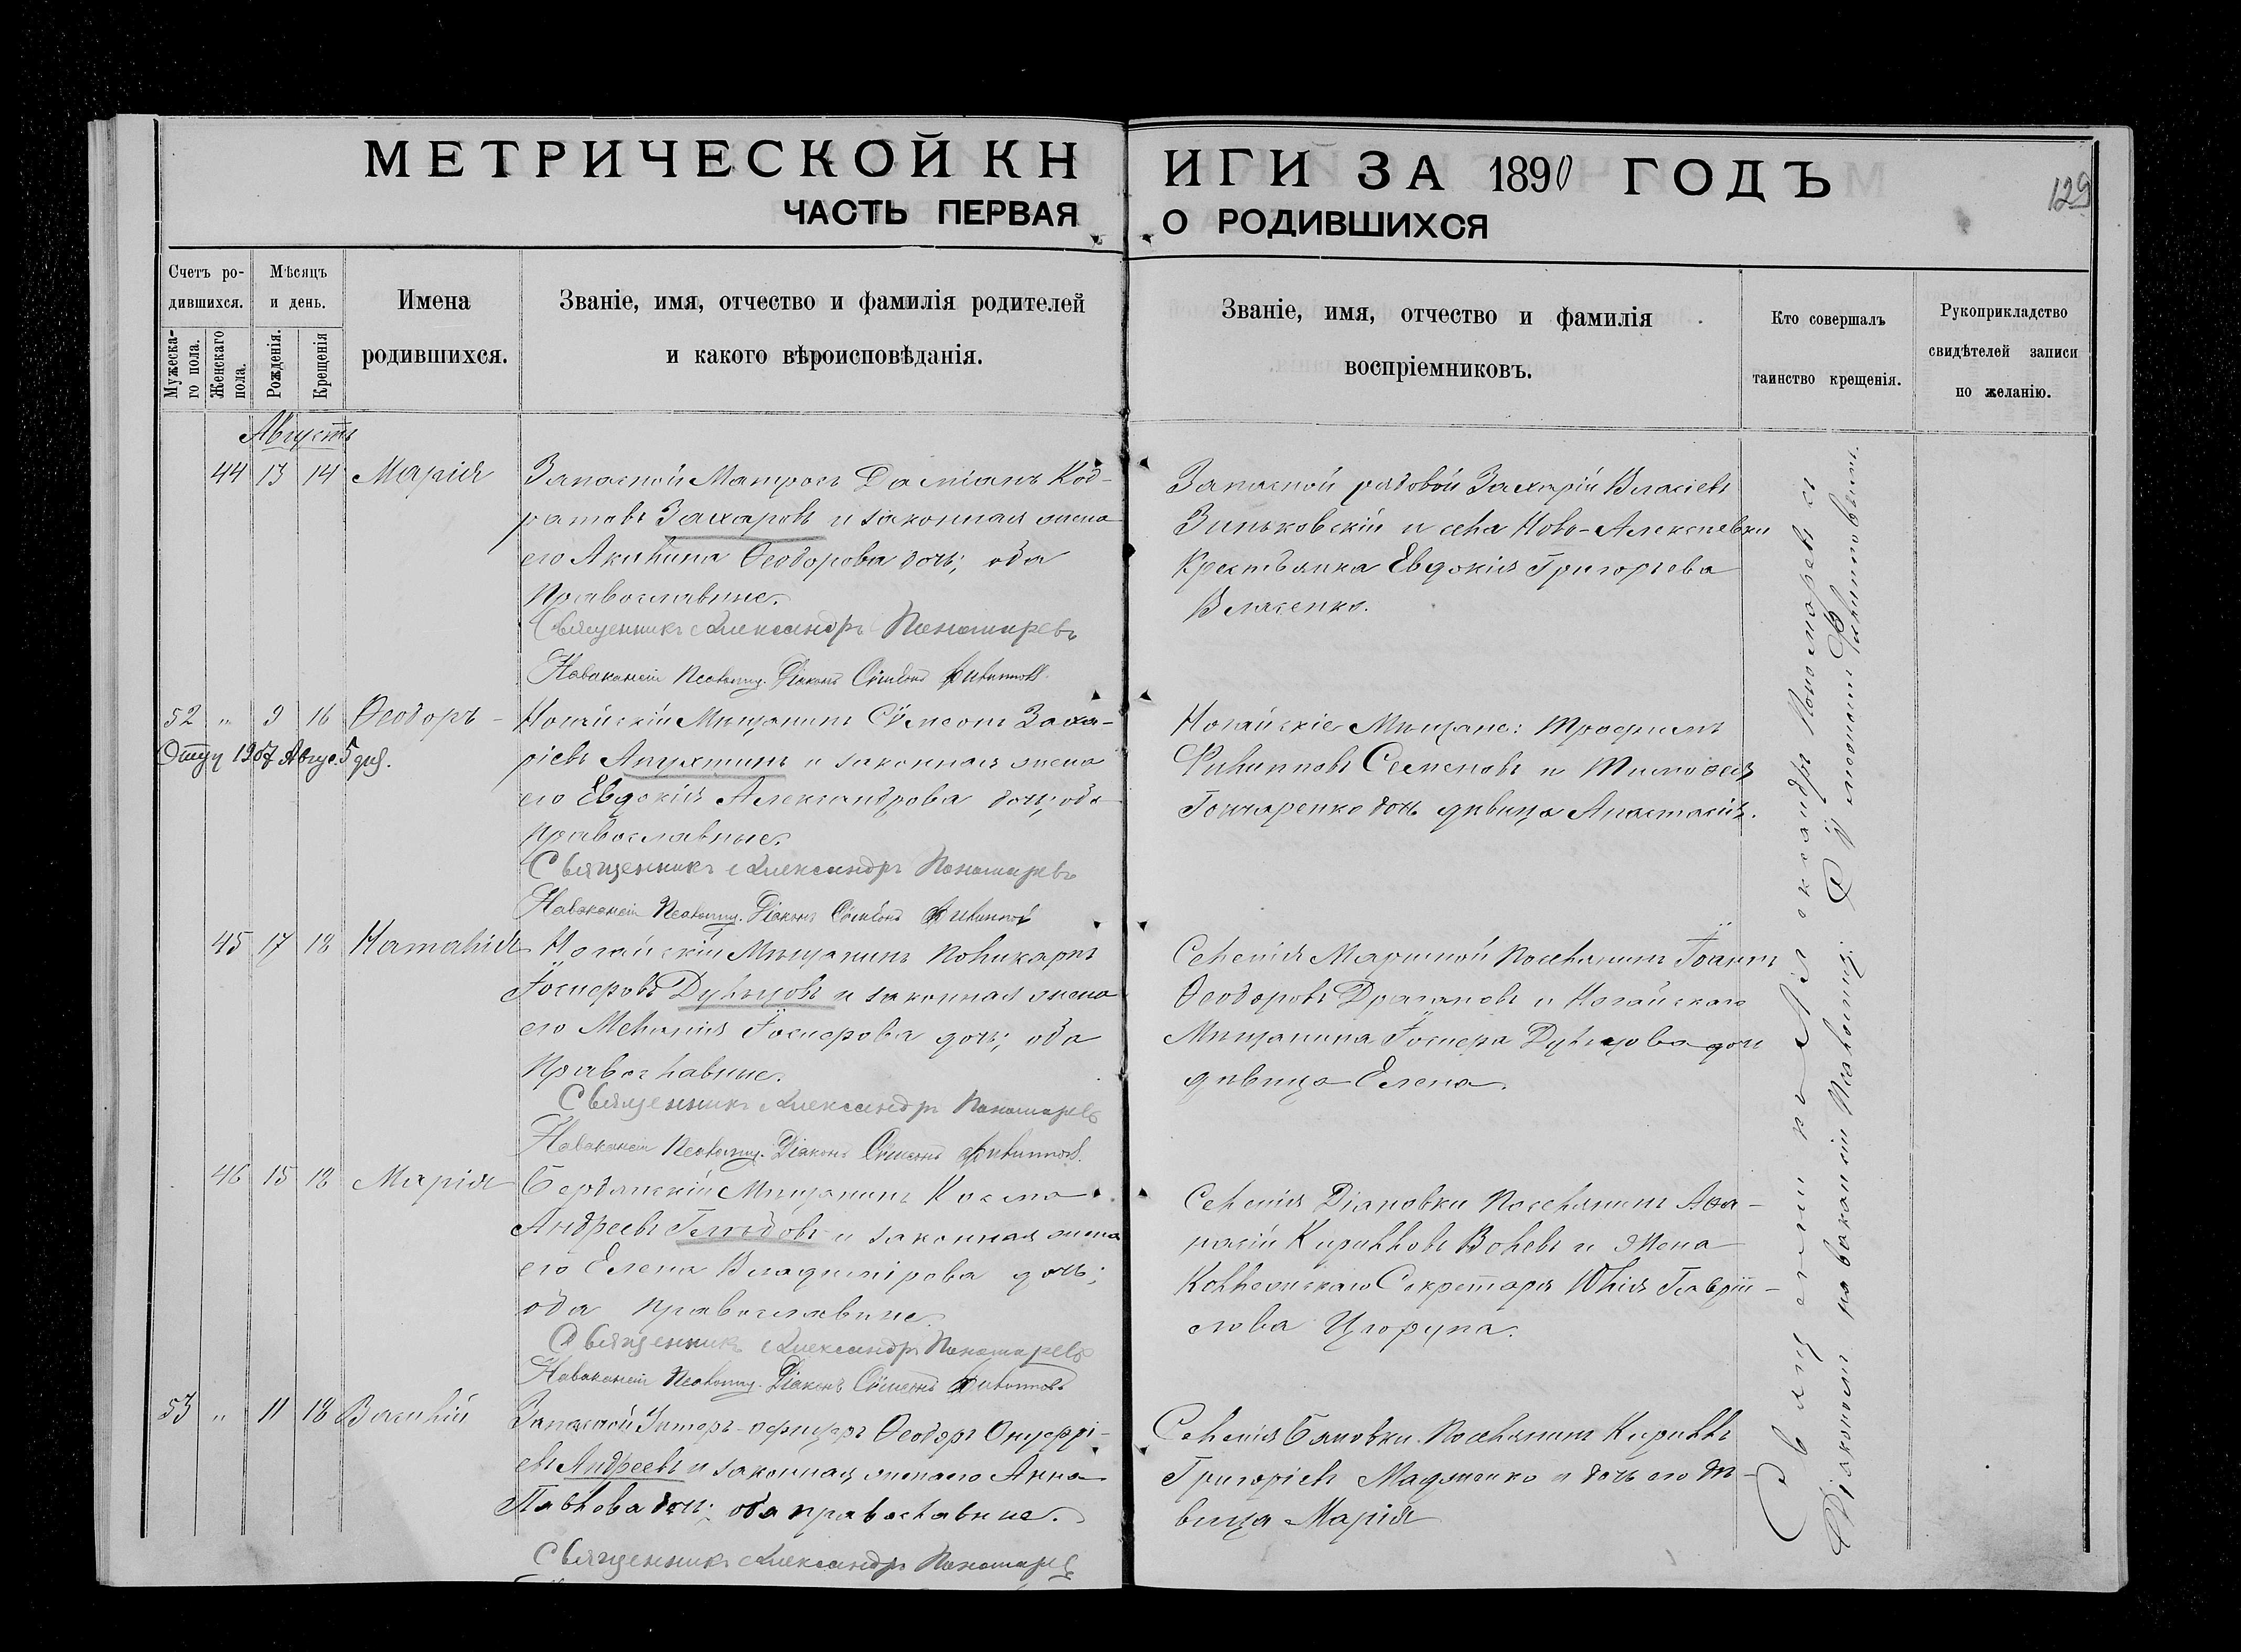 МЕТРИЧЕСКОЙ КНИГИ ЗА 1890 ГОДЪ
129
ЧАСТЬ ПЕРВАЯ О РОДИВШИХСЯ
Счетъ ро-
дившихся.
Мужеска-
го пола.
Женскаго
пола.
Мѣсяцъ
и день.
Рожденія.
Крещенія
Имена
родившихся.
Званіе, имя, отчество и фамилія родителей
и какого вѣроисповѣданія.
Званіе, имя, отчество и фамилія
воспріемниковъ.
Кто совершалъ
таинство крещенія.
Рукоприкладство
свидѣтелей записи
по желанію.
Августъ
44 13 14 Марія
Запасной Матросъ Даміанъ Код-
ратовъ Захаровъ и законная жена
его Акилина Ѳеодорова дочь; оба
Православные.
Священникъ Александръ Пономаревъ
На вакансіи Псаломщ. Діаконъ Сѵмеонъ Филипповъ.
Запасной рядовой Захарій Власіевъ
Зиньковскій и села Ново-Алексѣевки
Крестьянка Евдокія Григорьева
Власенко.
52 " 9 16 Ѳеодоръ
1907 Авгус. 5 дня.
Ногайскій Мѣщанинъ Сѵмеонъ Заха-
ріевъ Апухтинъ и законная жена
его Евдокія Александрова дочь; оба
Православные.
Священникъ Александръ Пономаревъ
На вакансіи Псаломщ. Діаконъ Сѵмеонъ Филипповъ
Ногайскіе Мѣщане: Трофимъ
Филипповъ Семеновъ и Тимоѳея
Гончаренко дочь дѣвица Анастасія.
45 17 18 Наталія
Ногайскій Мѣщанинъ Поликарпъ
Іосифовъ Дульцовъ и законная жена
его Меланія Іосифова дочь; оба
Православные.
Священникъ Александръ Пономаревъ
На вакансіи Псаломщ. Діаконъ Сѵмеонъ Филипповъ.
Селенія Маріиной Поселянинъ Іоаннъ
Ѳеодоровъ Драгановъ и Ногайскаго
Мѣщанина Іосифа Дульцова дочь
дѣвица Елена.
46 15 18 Марія
Бердянскій Мѣщанинъ Косма
Андреевъ и законная жена
его Елена Владимірова дочь;
оба Православные.
Священникъ Александръ Пономаревъ
На вакансіи Псаломщ. Діаконъ Сѵмеонъ Филипповъ
Селенія Діановки Поселянинъ Аѳа-
насій Кирилловъ Волевъ и жена
Коллежскаго Секретаря Юлія Гавріи-
лова Цюрупа.
53 " 11 18 Василій
Запасной Унтеръ-офицеръ Ѳеодоръ Онуфрі-
евъ Андреевъ и законная жена его Анна
Павлова дочь; оба православные.
Священникъ Александръ Пономаревъ
Селенія Бановки Поселянинъ Кириллъ
Григоріевъ и дочь его дѣ-
вица Марія
Священникъ Александръ Пономаревъ съ
Діакономъ на вакансіи Псаломщ. Сѵмеономъ Филипповымъ.